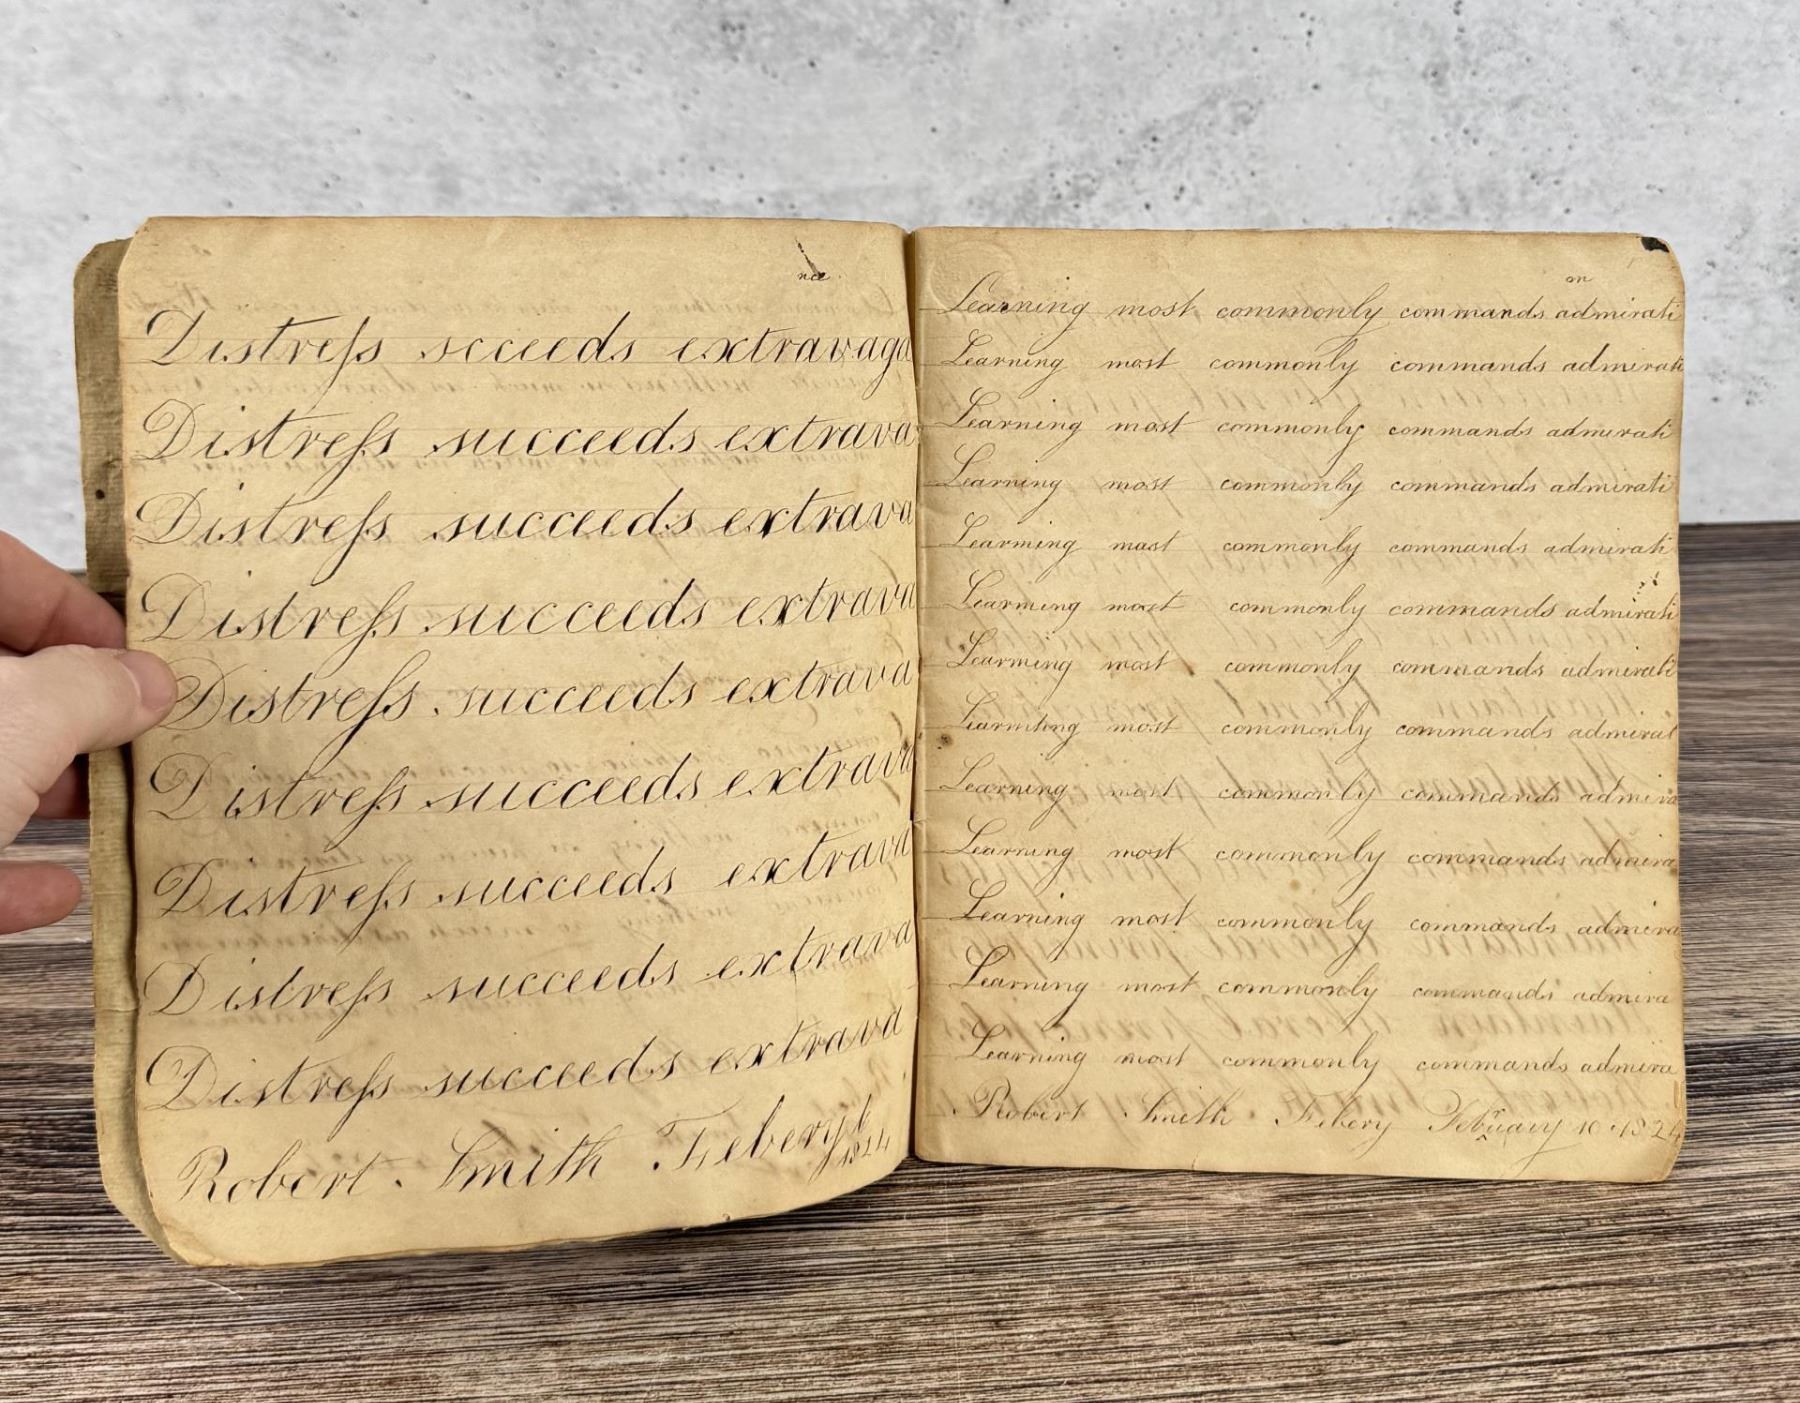 nce
Distreſs scceeds extravaga
Distreſs succeeds extrava
Distreſs succeeds extrava
Distreſs succeeds extrava
Distreſs succeeds extrava
Distreſs succeeds extrava
Distreſs succeeds extrava
Distreſs succeeds extrava
Distreſs succeeds extrava
Robert Smith Febery
1824
on
Learning most commonly commands admirati
Learning most commonly commands admirati
Learning most commonly commands admirati
Learning most commonly commands admirati
Learning most commonly commands admirati
Learning most commonly commands admirati
Learning most commonly commands admirati
Learning most commonly commands admirat
Learning most commonly commands admira
Learning most commonly commands admira
Learning most commonly commands admira
Learning most commonly commands admira
Learning most commonly commands admira
Robert Smith Febery February 10 1824